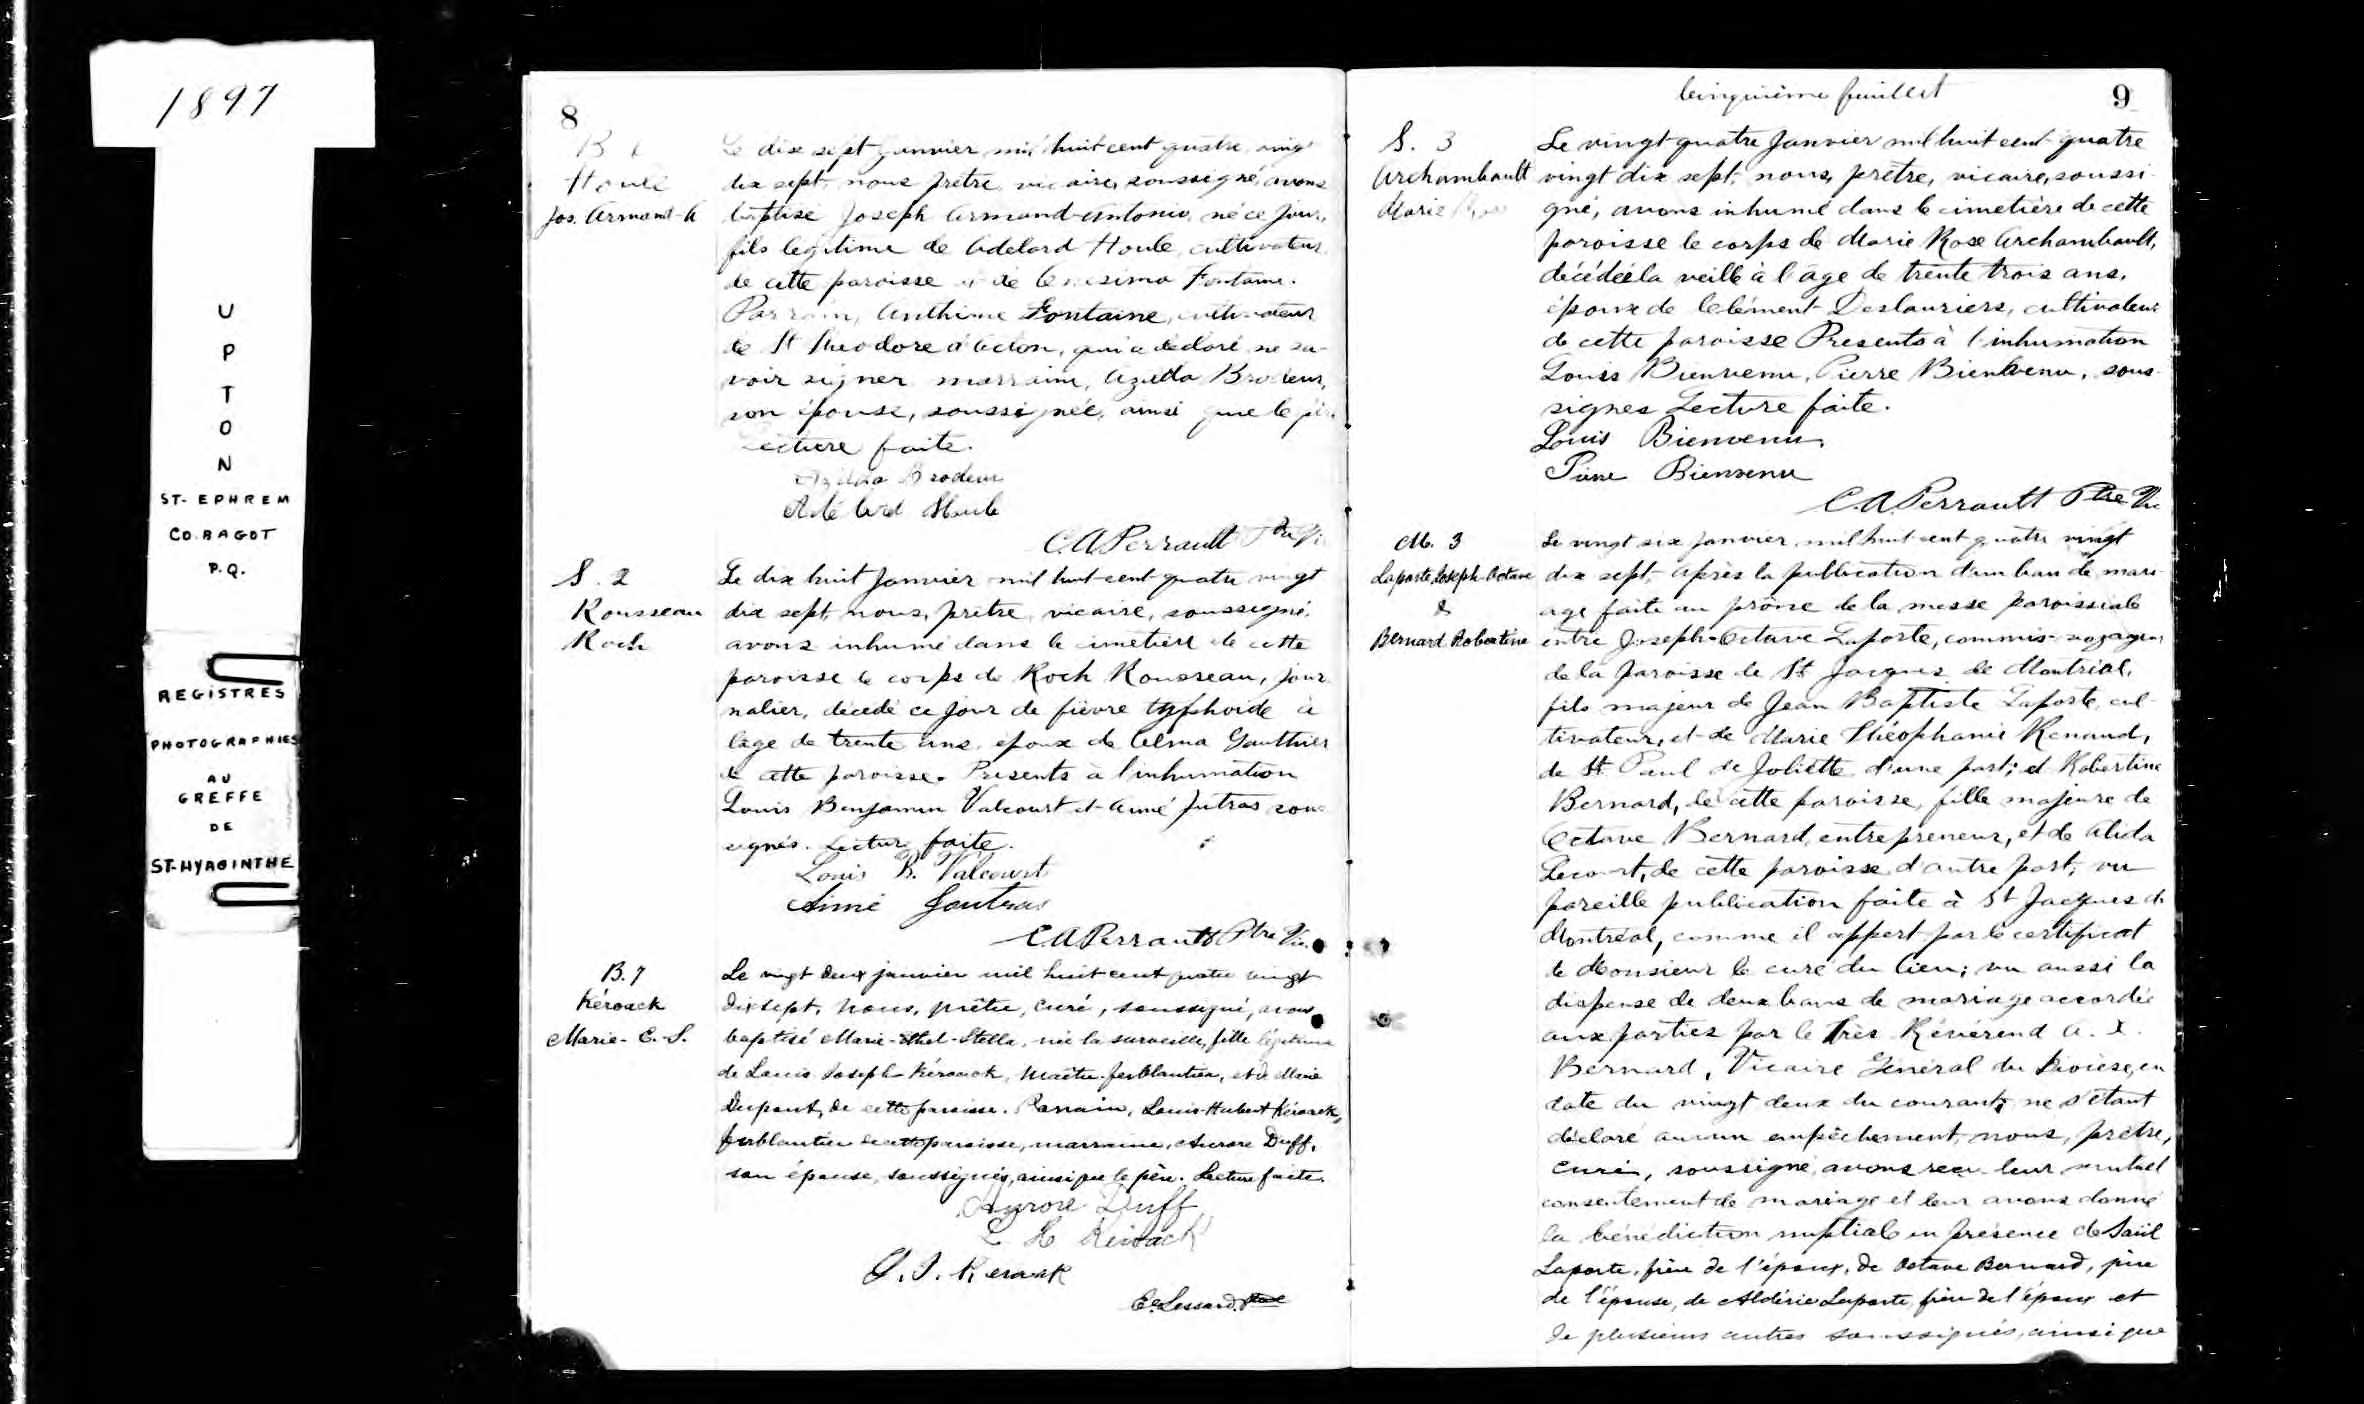 1897
U
P
T
O
N
ST-EPHREM
CO. BAGOT
P.Q.
REGISTRES
PHOTOGRAPHIES
AU
GREFFE
DE
ST-HYACINTHE
8
B
Houle
Jos. Armand-A
Le dix sept Janvier mil huit cent quatre vingt
dix sept, nous prêtre, vicaire, soussigné, avons
baptisé Joseph Armand-Antonio, né ce jour,
fils légitime de Adelard Houle, cultivateur
de cette paroisse et de Fontaine.
Parrain, Anthime Fontaine, cultivateur
de St Theodore d'Acton, qui a déclaré ne sa-
voir signer marraine, Azilda Brodeur,
son épouse, soussignée, ainsi que le père
Lecture faite.
Azilda Brodeur
Adélard Houle
C.A. Perrault Ptre Vic
S. 2
Rousseau
Roch
Le dix huit Janvier mil huit-cent-quatre vingt
dix sept, nous, prêtre, vicaire, soussigné,
avons inhumé dans le cimetière de cette
paroisse le corps de Roch Rousseau, jour
nalier, décédé ce jour de fièvre typhoide à
lage de trente ans, époux de Celma Gauthier
de cette paroisse. Présents à l'inhumation
Louis Benjamin Valcourt et Aimé Jutras sous
signés. Lecture faite.
Louis B. Valcourt
Aimé Joutras
C.A Perrault Ptre Vic.
B. 7
Kéroack
Marie-E.-S.
Le vingt deux janvier mil huit cent quatre vingt
dix sept, nous, prêtre, curé, soussigné, avons
baptisé Marie-Ethel-Stella, née la surveille, fille légitime
de Louis Joseph Kéroack, maître-ferblantier, et de Marie
Dupont, de cette paroisse. Parrain, Louis-Hubert Kéroack,
ferblantier de cette paroisse, marraine, Aurore Duff,
son épouse, soussignés, ainsi que le père. Lecture faite.
Aurore Duff
L H Kéroack
L. J. Keroack
E. Lessard Ptre
Cinquième feuillet
9
S. 3
Archambault
Marie Rose
Le vingt-quatre Janvier mil huit cent quatre
vingt dix sept, nous, prêtre, vicaire, soussi-
gné, avons inhumé dans le cimetière de cette
paroisse le corps de Marie Rose Archambault,
décédée la veille à l'âge de trente trois ans,
épouse de Clément Deslauriers, cultivateur
de cette paroisse Presents à l'inhumation
Louis Bienvenu, Pierre Bienvenu, sous-
signes Lecture faite.
Louis Bienvenu
Pierre Bienvenu
C.A. Perrault Ptre Vic
M. 3
Laporte Joseph-Octave
&
Bernard Robertine
Le vingt six janvier mil huit cent quatre vingt
dix sept, après la publication d'un ban de mari-
age faite au prône de la messe paroissiale
entre Joseph-Octave Laporte, commis-voyageur
de la paroisse de St Jacques de Montréal,
fils majeur de Jean Baptiste Laporte, cul-
tivateur, et de Marie Théophanie Renaud,
de St Paul de Joliette d'une part; et Robertine
Bernard, de cette paroisse, fille majeure de
Octave Bernard, entrepreneur, et de Alida
de cette paroisse d'autre part; vu
pareille publication faite à St Jacques de
Montréal, comme il appert par le certificat
de Monsieur le curé du lieu; vu aussi la
dispense de deux bans de mariage accordée
aux parties par le Très Révérend A. X.
Bernard, Vicaire Général du Diocèse, en
date du vingt deux du courant; ne s'étant
déclaré aucun empêchement, nous, prêtre,
curé, soussigné, avons reçu leur mutuel
consentement de mariage et leur avons donné
la bénédiction nuptiale en présence de Saül
Laporte, frère de l'époux, de Octave Bernard, père
de l'épouse, de Aldéric Laporte, frère de l'époux et
de plusieurs autres soussignés, ainsi que